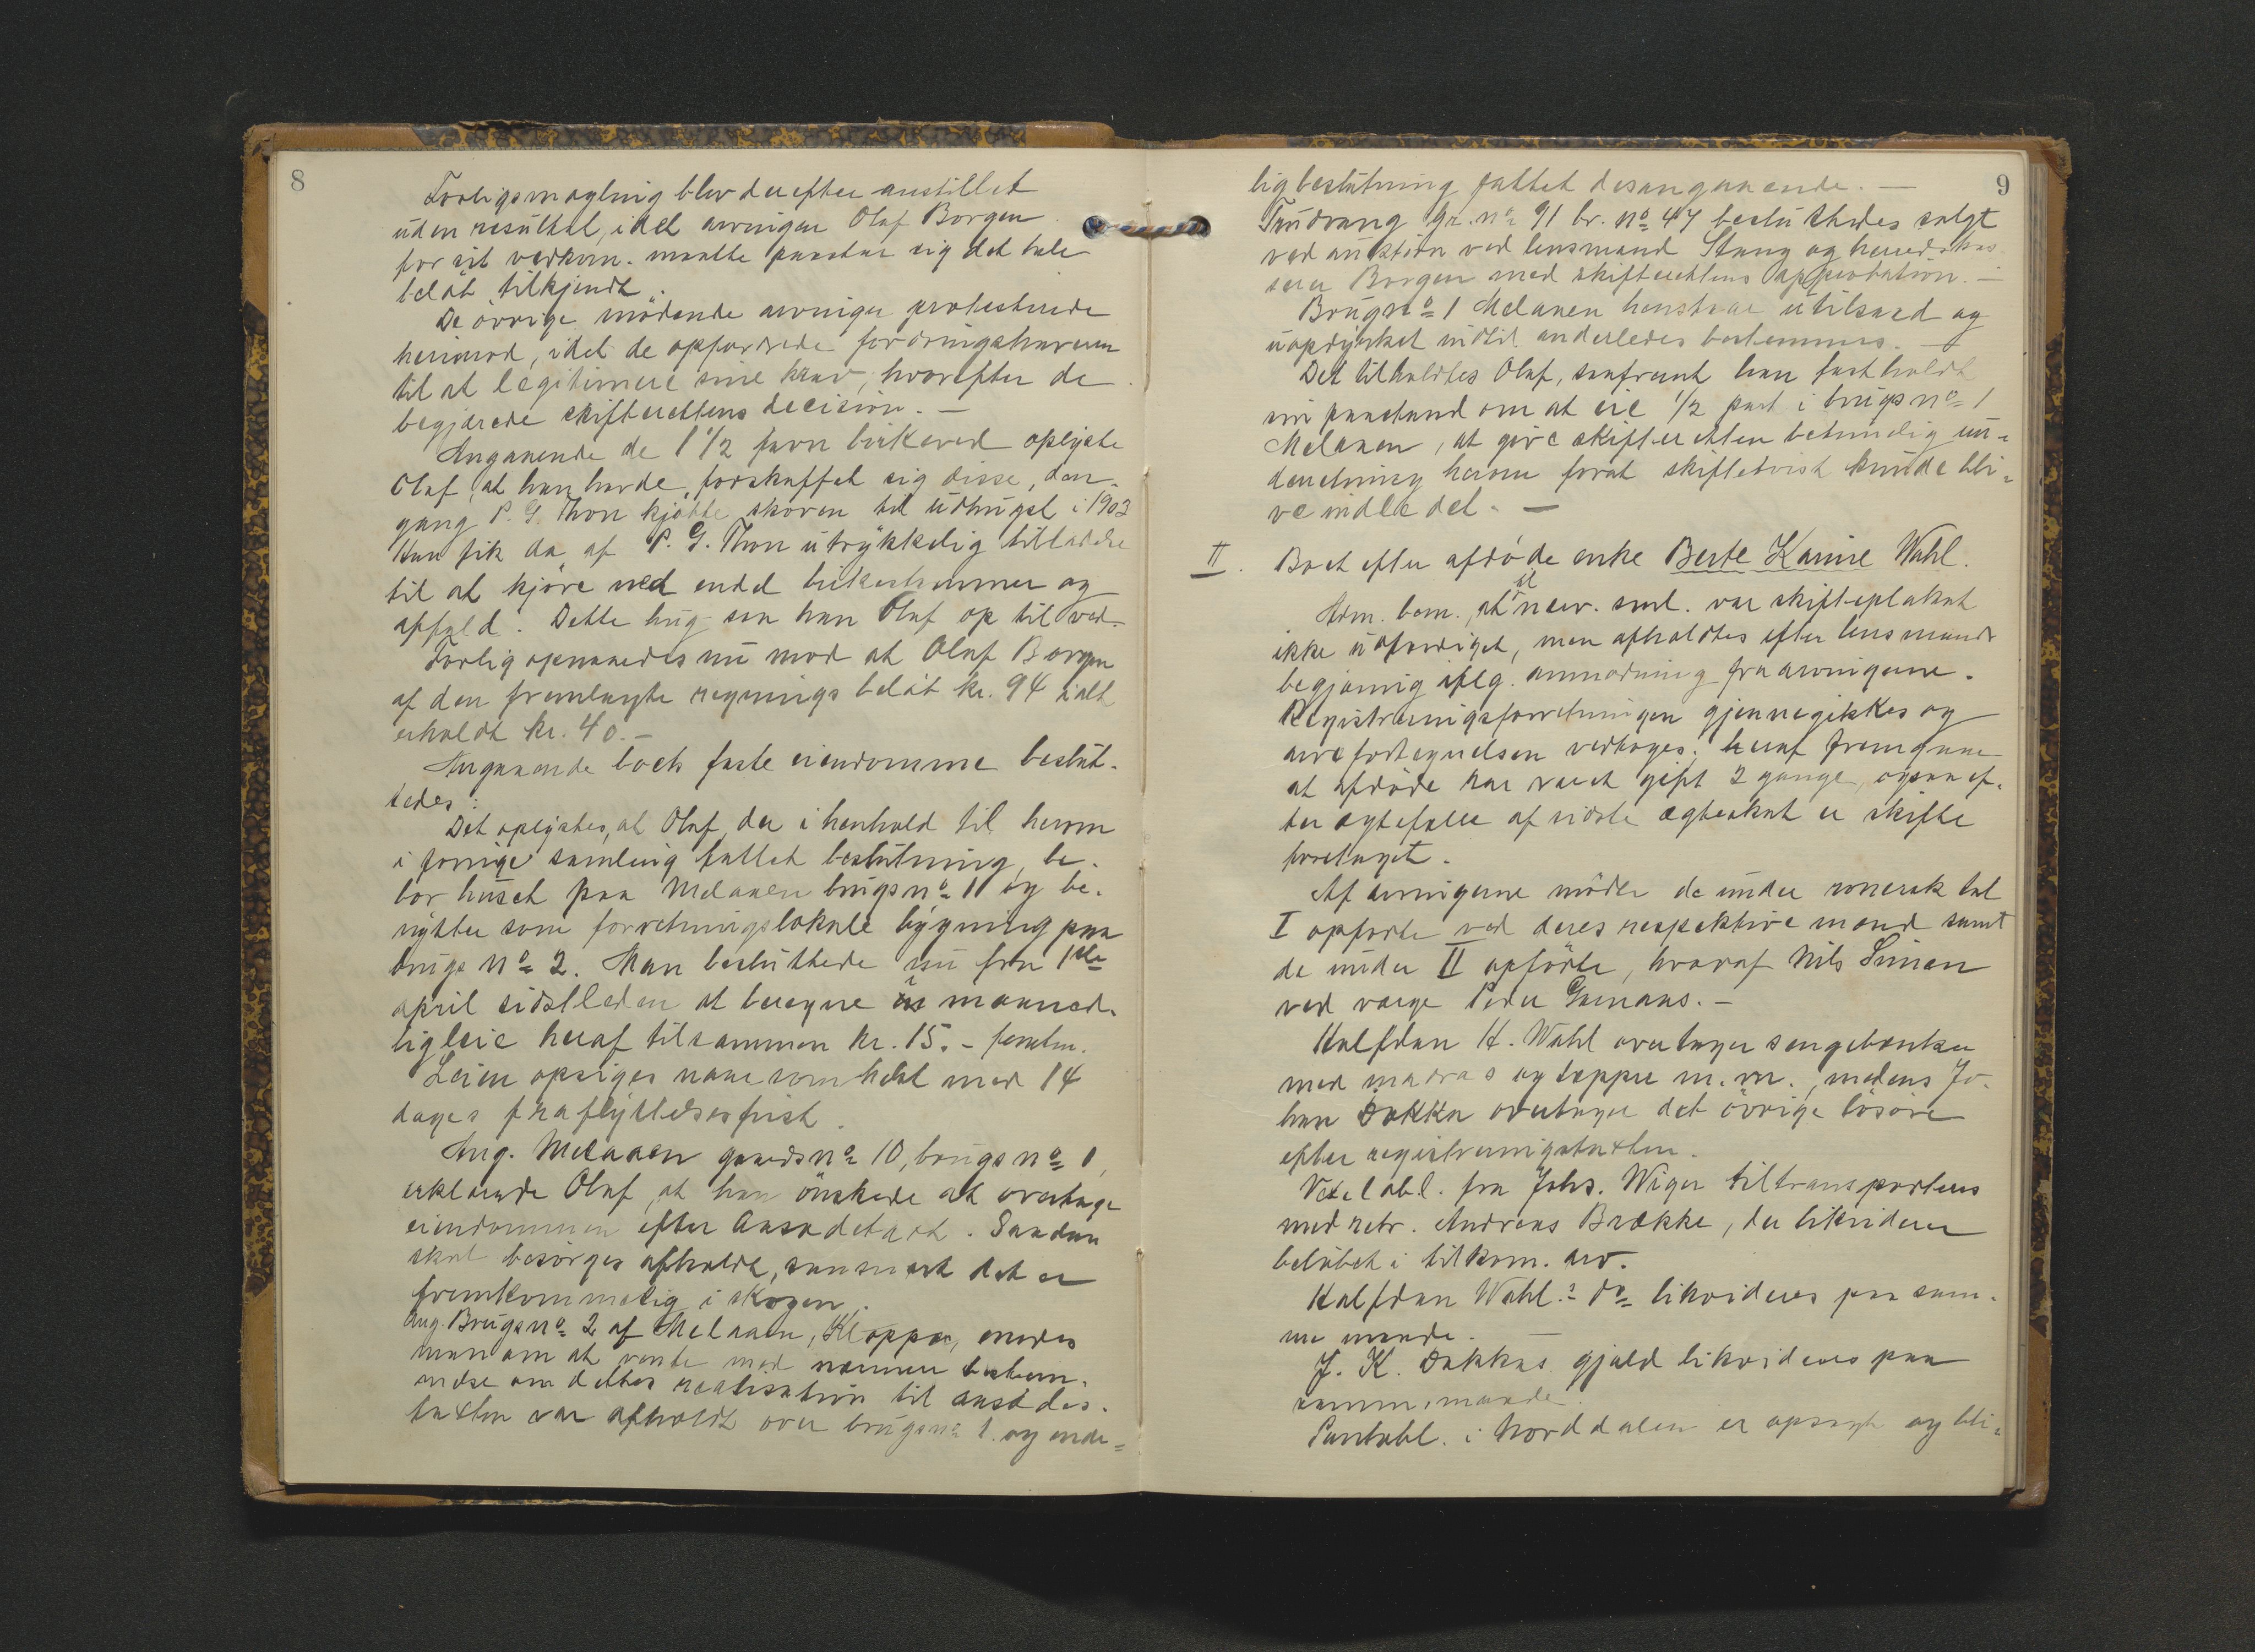 8
Forligsmægling blev derefter anstillet
uden resultat, idet arvingen Olaf Borgen
for sit vedkom. maatte paastaa sig det hele
beløb tilkjendt.
De øvrige mødende arvinger protesterede
herimod, idet de opfordrede fordringshaveren
til at legitimere sine krav, hvorefter de
begjærede skifterettens decision. —
Angaaende de 1 1/2 favn birkeved oplyste
Olaf, at han havde forskaffet sig disse, den
gang P. G. Thon kjøbte skoven til udhugst i 1903
Han fik da af P. G. Thon utrykkelig tilladelse
til at kjøre ned endel birkestammer og
affald. Dette hug saa han Olaf op til ved.
Forlig opnaaedes nu mod at Olaf Borgen
af den fremlagte regnings beløb kr. 94 ialt
erholdt kr. 40. —
Angaaende boets faste eiendomme beslut-
tedes:
Det oplystes, at Olaf, der i henhold til herom
i forrige samling fattet beslutning, be-
bor huset paa Melaaen brugs no 1 og be-
nytter som forretningslokale bygning paa
brugs no 2. Man besluttede nu fra 1ste
april sidstleden at beregne i maaned-
lig leie heraf tilsammen kr. 15. - femten.
Leien opsiges naarsomhelst med 14
dages fraflyttelsesfrist.
Ang. Melaaen gaards no 10, brugs no 1,
erklærede Olaf, at han ønskede at overtage
eiendommen efter Aasædetaxt. Saadan
skal besørges afholdt, saasnart det er
fremkommelig i skogen.
Ang. Brugs no 2 af Melaaen, Kloppen, enedes
man om at vente med nærmere bestem-
melse om dettes realisation til aasædes-
taxten var afholdt over brugs no 1 og ende=
9
lig beslutning fattet desangaaende. —
Gr. no 91 br. no 47 besluttedes solgt
ved auktion ved lensmand Stang og herredskas-
serer Borgen med skifterettens approbation. —
Brugs no 1 Melaaen henstaar utilsaaed og
uopdyrket indtil anderledes bestemmes. —
Det tilholdtes Olaf, saafremt han fastholdt
sin paastand om at eie 1/2 part i brugs no 1
Melaaen, at gjøre skifteretten betimelig un-
derretning herom forat skiftetvist kunde bli-
ve indledet. —
II. Boet efter afdøde enke Berte Karine Wahl.
Adm. bem., at til nærv. saml. var skifteplakat
ikke udfærdiget, men afholdtes efter lensmands
begjæring iflg. anmodning fra arvingerne.
Registreringsforretningen gjennegikkes og
arvefortegnelsen vedtoges; heraf fremgaar
at afdøde har været gift 2 gange, ogsaa ef-
ter ægtefælle af sidste ægteskab er skifte
foretaget.
Af arvingerne mødte de under romersk tal
I opførte ved deres respektive mænd samt
de under II opførte, hvoraf Nils Simen
ved værge Peder
Halfdan H. Wahl overtager sengebænken
med madras og tæppe m. m., medens Jo-
han Dokka overtager det øvrige løsøre
efter registreringstaxten.
Vexelobl. fra Johs. Wiger tiltransporteres
med retr. Andreas Brække, der likviderer
beløbet i tilkom. arv.
Halfdan Wahls do likvideres paa sam-
me maade. —
J. K. Dokkas gjæld likvideres paa
samme maade.
Pantobl. i Norddalen er opsagt og bli=